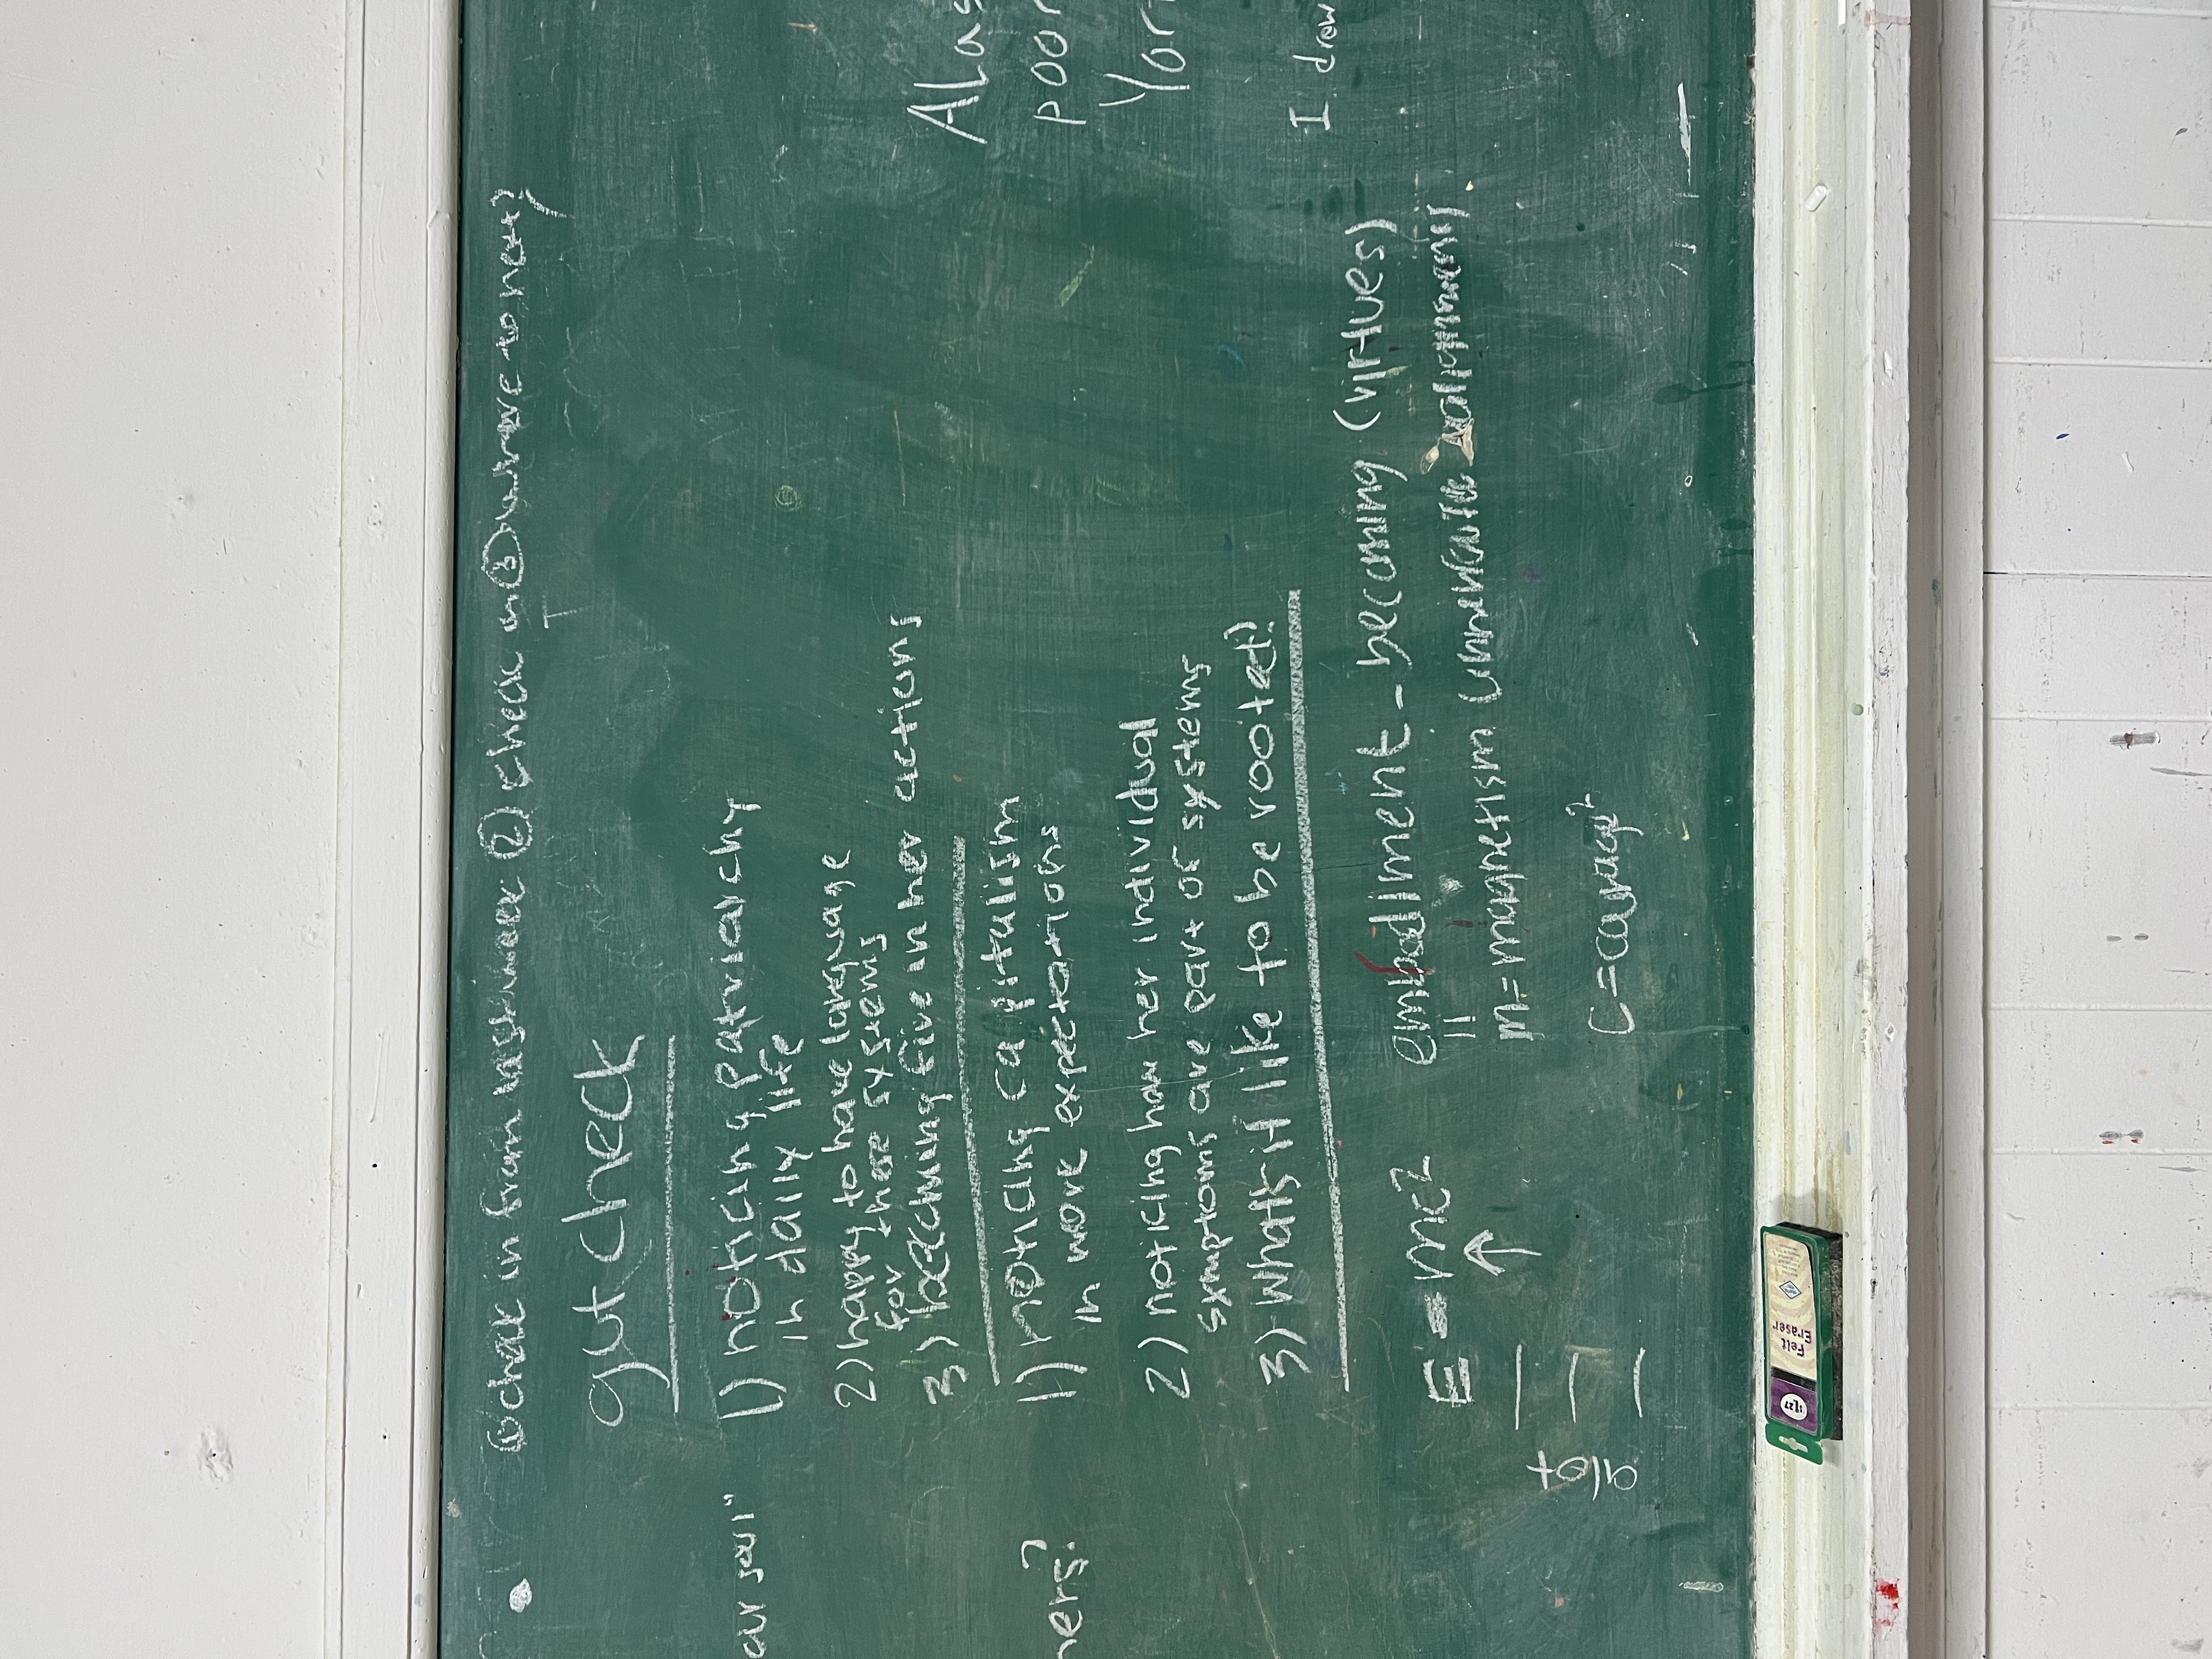 check in from last time ② check in ③ where to next?
gut check
1) noticing patriarchy
in daily life
2) happy to have language
for these systems
3) becoming five in her actions
1) noticing capitalism
in work expectations
2) noticing how her individual
symptoms are part of systems
3) what is it like to be rooted?
E = mc2
embodiment - becoming (virtues)
m = magnetism
alignment
to
our soul"
ners?
Alas
poor
Yor
I drew
Felt
Eraser
$1.27